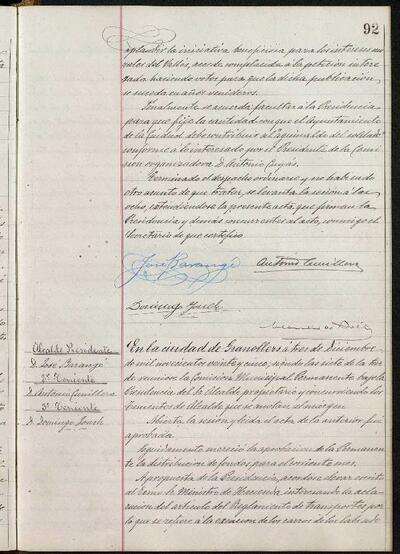 92
aplaudir la iniciativa beneficiosa para los intereses mo
rales del Vallés, accede complacida a la petición intere
sada haciendo votos para que la dicha publicación
se suceda en años venideros.
Finalmente se acuerda facultar á la Presidencia
para que fije la cantidad con que el Ayuntamiento
de la Ciudad debe contribuir al Aguinaldo del soldado
conforme á lo interesado por el Presidente de la Comi
sion organizadora D. Antonio
Terminado el despacho ordinario y no habiendo
otro asunto de que tratar, se levanta la sesión á las
ocho, extendiéndose la presente acta, que firman la
Presidencia y demás concurrentes al acto, conmigo el
Secretario de que certifico.
José Barangé
Antonio Cumillera
Domingo Jonch
Alcalde Presidente
D. José Barangé
2º Teniente
D. Antonio Cumillera
3º Teniente
D. Domingo Jonch
En la ciudad de Granollers á tres de Diciembre
de mil novecientos veinte y cinco, siendo las siete de la tar
de reunióse la Comisión Municipal Permanente bajo la
Presidencia del Sr. Alcalde propietario y concurriendo los
Tenientes de Alcalde que se anotan al margen.
Abierta la sesión y leída el acta de la anterior, fué
aprobada.
Seguidamente mereció la aprobación de la Permanen
te la distribución de fondos para el corriente mes.
A propuesta de la Presidencia, acordóse elevar escrito
al Excmo. Sr. Ministro de Hacienda interesando de acla
ración del artículo del Reglamento de transportes por
lo que se refiere á la exención de los carros de los labrado